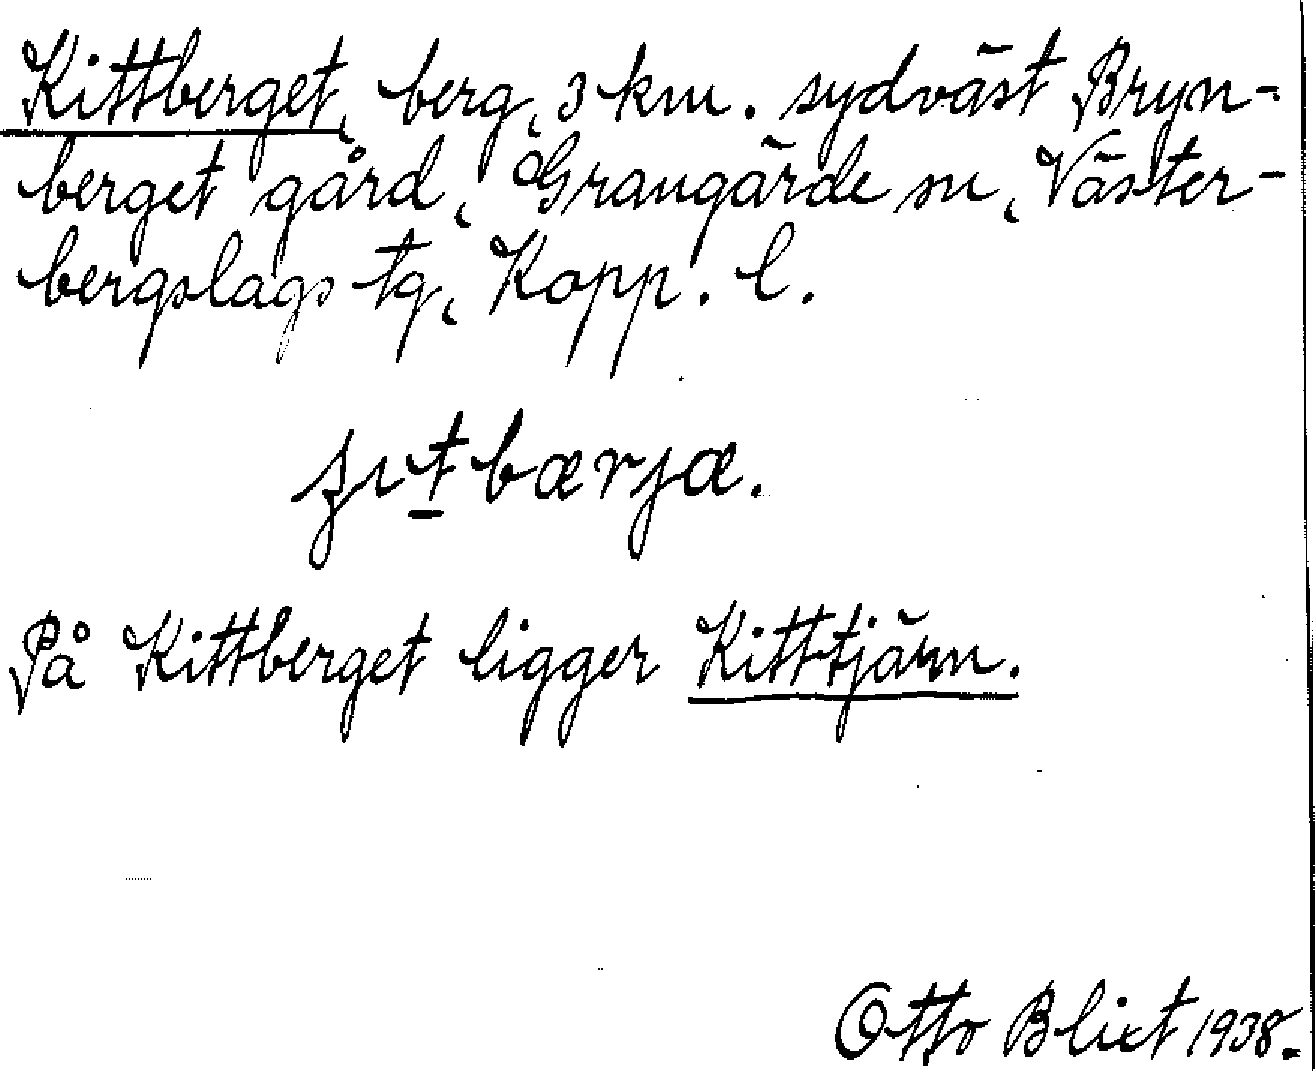 Kittberget, berg, 3 km. sydväst Bryn-
berget gård, Grangärde sn, Väster-
bergslags tg, Kopp. l.
På Kittberget ligger Kitttjärn.
Otto Blixt 1938.